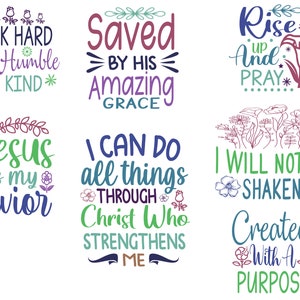 K HARD
Humble
KIND
Saved
BY HIS
Amazing
GRACE
Rise
up
And
PRAY
esus
s my
vior
I CAN DO
all things
THROUGH
Christ Who
STRENGTHENS
ME
I WILL NOT
SHAKEN
Created
With A
PURPOS